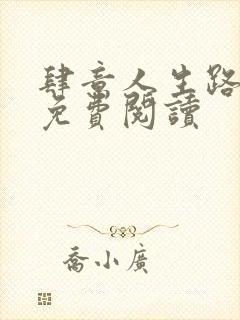 肆意人生路
免費閱讀
喬小廣